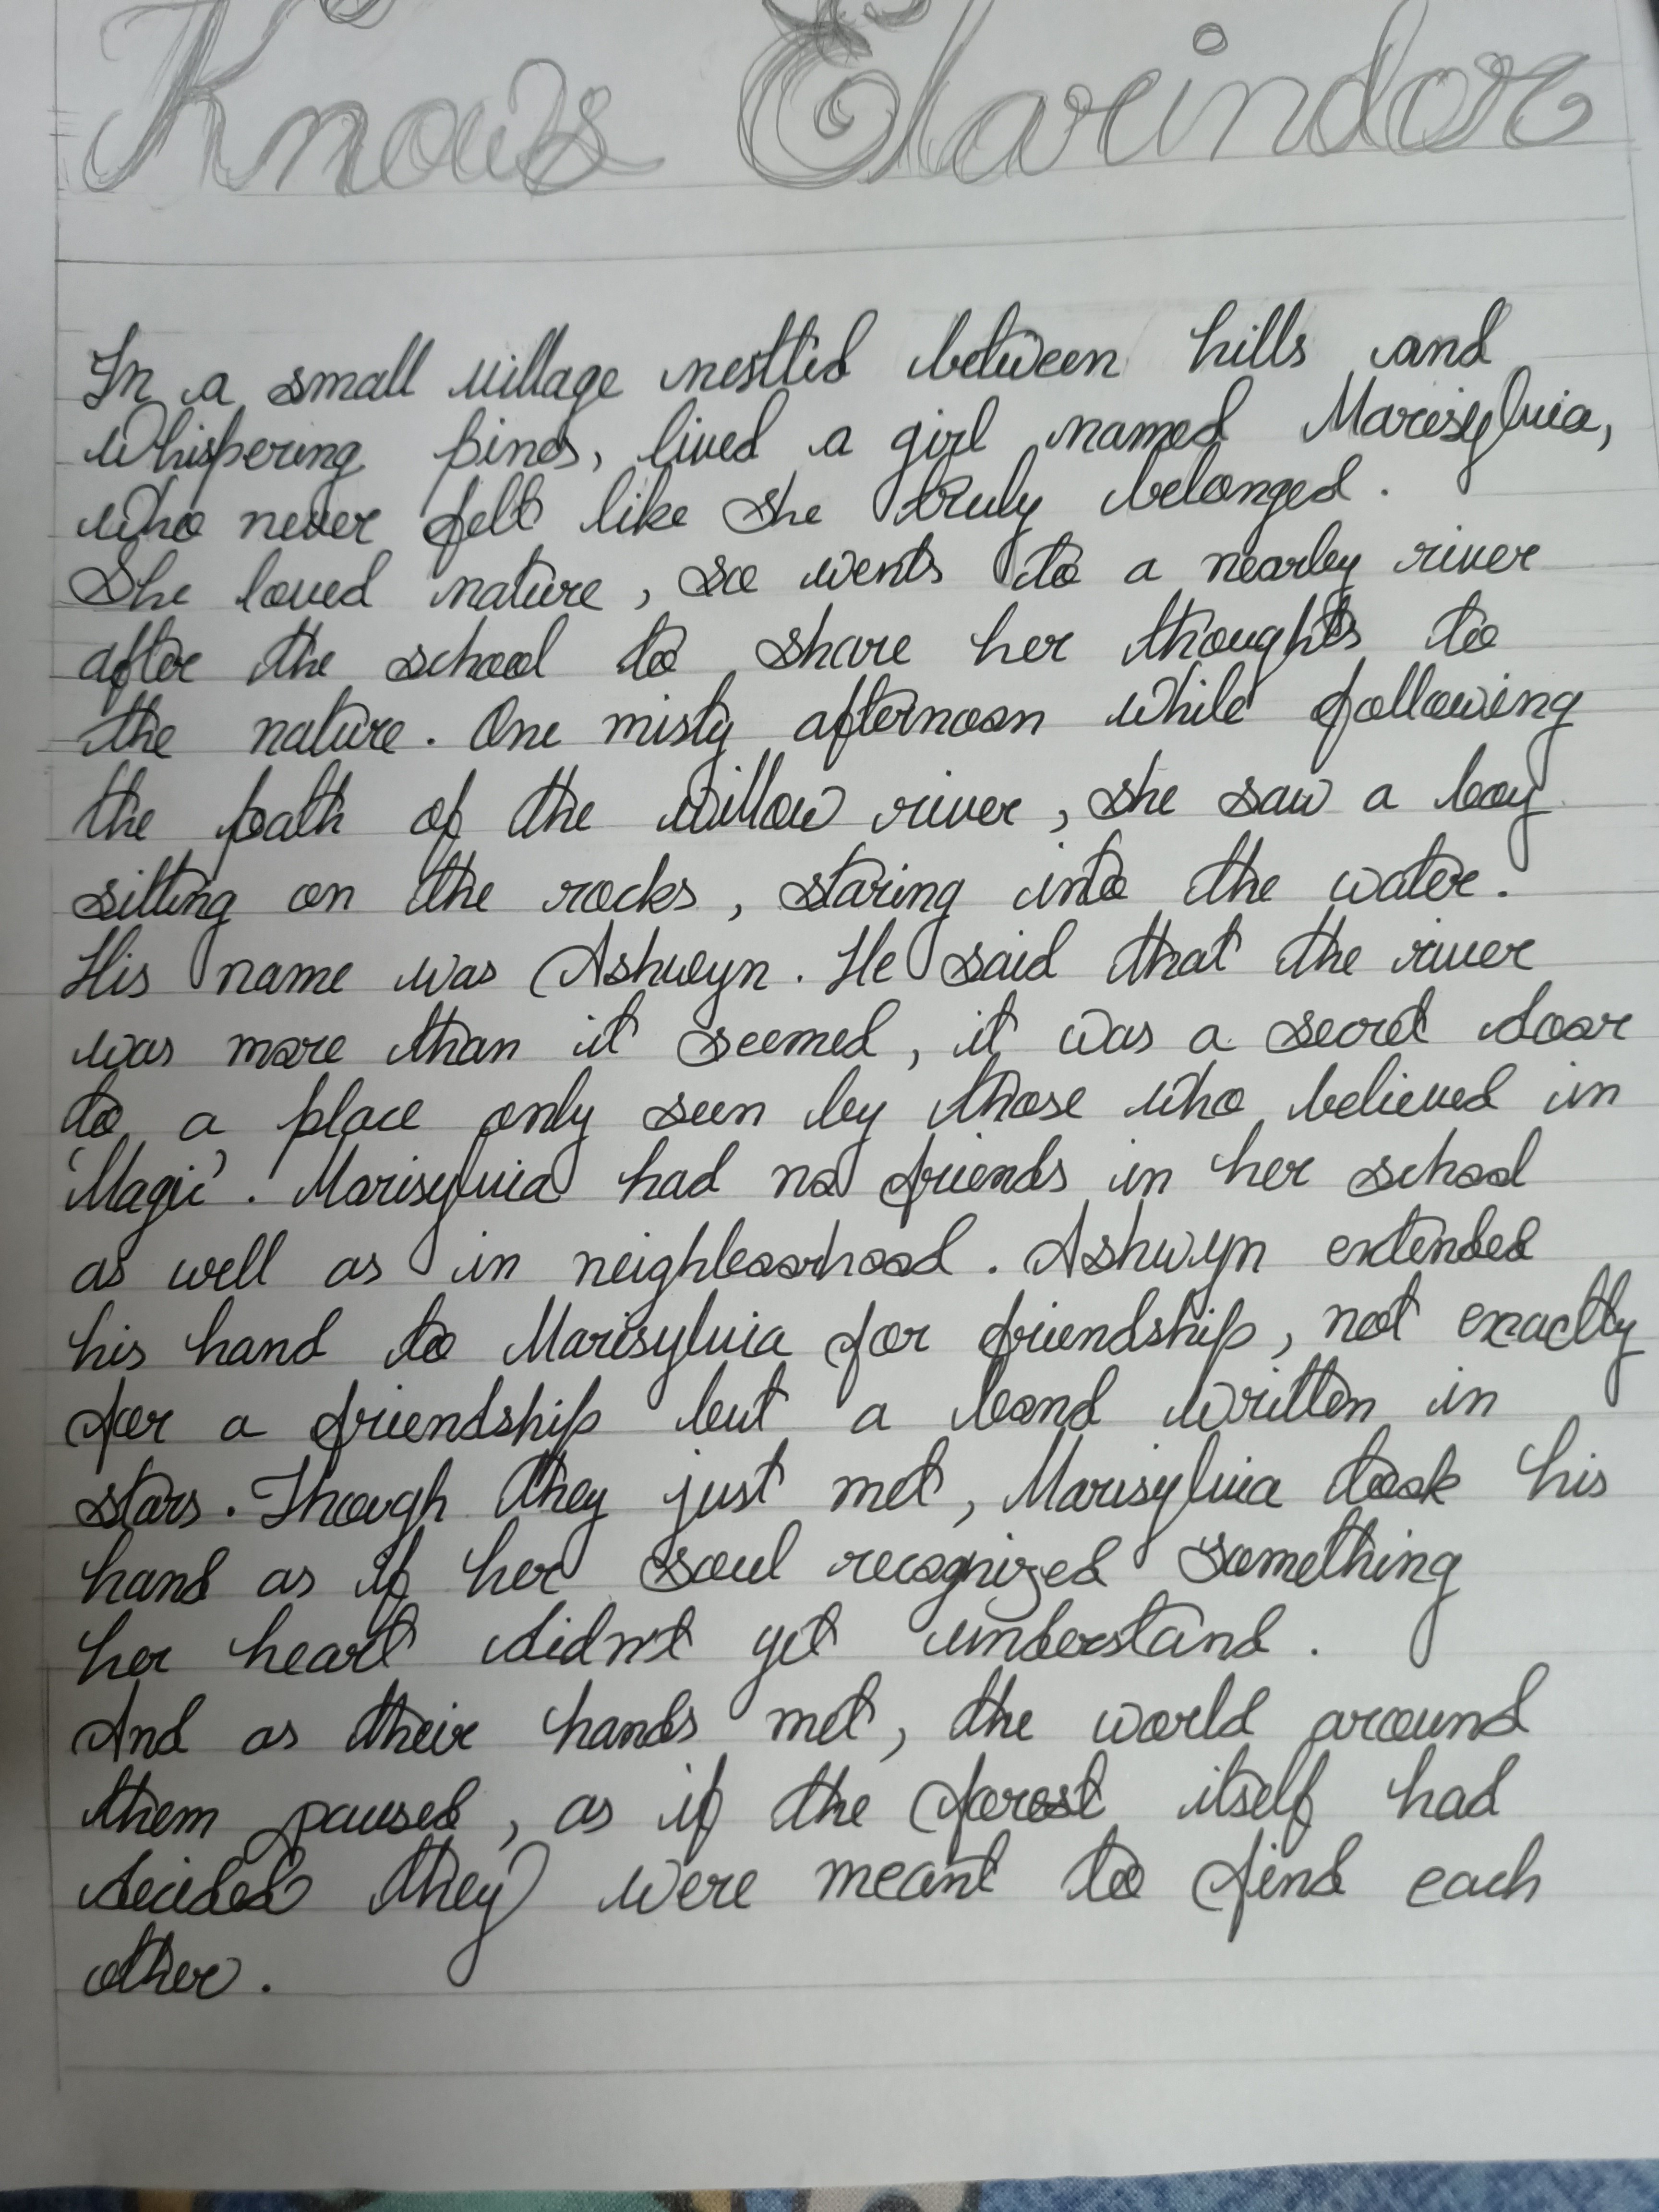 Knows Elarindor
In a small village nestled between hills and
whispering pines, lived a girl named Marisylvia,
who never felt like she truly belonged.
She loved nature, so wents to a nearby river
after the school to share her thoughts to
the nature. One misty afternoon while following
the path of the willow river, she saw a boy
sitting on the rocks, staring into the water.
His name was Ashwyn. He said that the river
was more than it seemed, it was a secret door
to a place only seen by those who believed in
'Magic'. Marisylvia had no friends in her school
as well as in neighboorhood. Ashwyn extended
his hand to Marisylvia for friendship, not exactly
for a friendship but a bond written in
stars. Though they just met, Marisylvia took his
hand as if her soul recognized something
her heart didn't yet understand.
And as their hands met, the world around
them paused, as if the forest itself had
decided they were meant to find each
other.